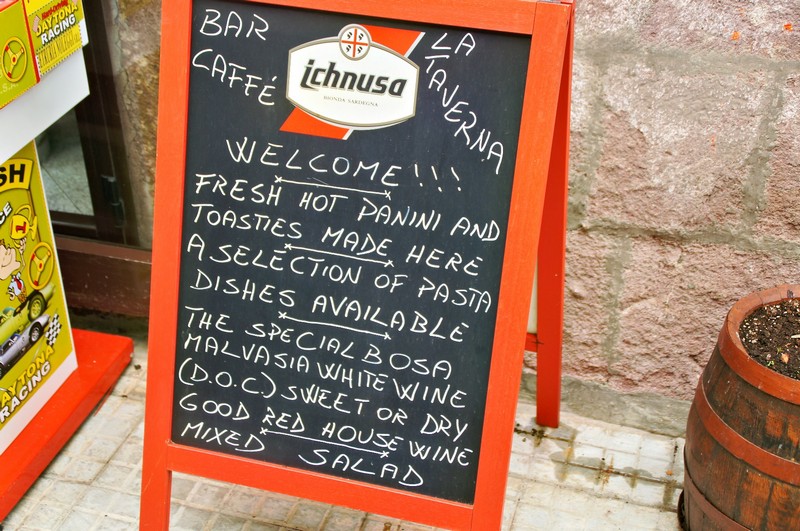 BAR
CAFFÉ
ichnusa
BIONDA SARDEGNA
LA
TAVERNA
WELCOME!!!
FRESH HOT PANINI AND
TOASTIES MADE HERE
A SELECTION OF PASTA
DISHES AVAILABLE
THE SPECIAL BOSA
MALVASIA WHITE WINE
(D.O.C.) SWEET OR DRY
GOOD RED HOUSE WINE
MIXED SALAD
DAYTONA
RACING
SH
DAYTONA
RACING